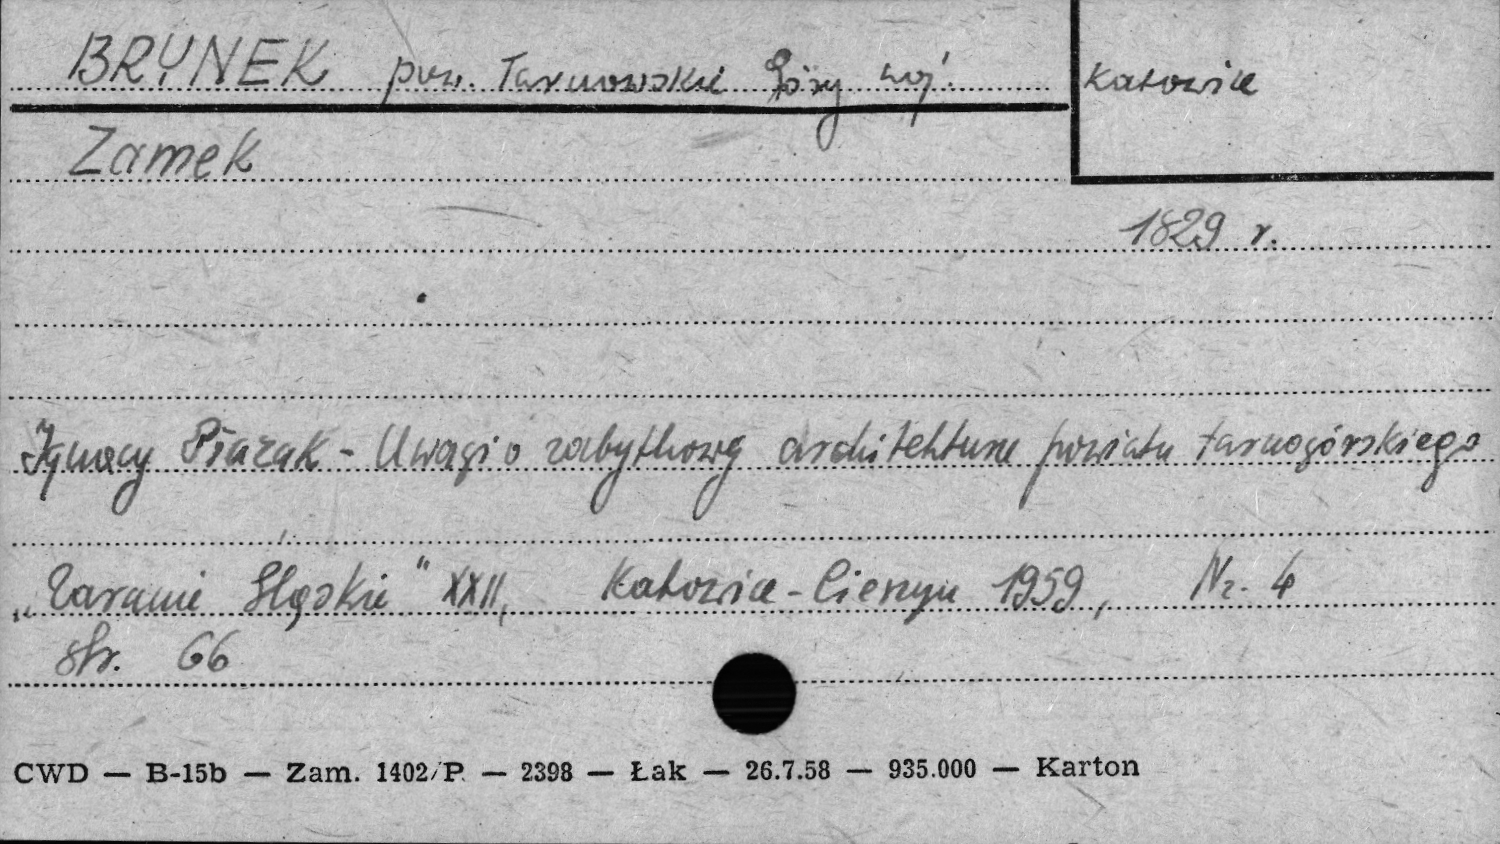 BRYNEK pow. Tarnowskie Góry woj. Katowice
Zamek
1829 r.
Ignacy Płazak - Uwagi o zabytkowej architekturze powiatu tarnogórskiego
„Zaranie Śląskie" XXII, Katowice - Cieszyn 1959, Nr. 4
str. 66
CWD — B-15b — Zam. 1402/P. — 2398 — Łak — 26.7.58 — 935.000 — Karton